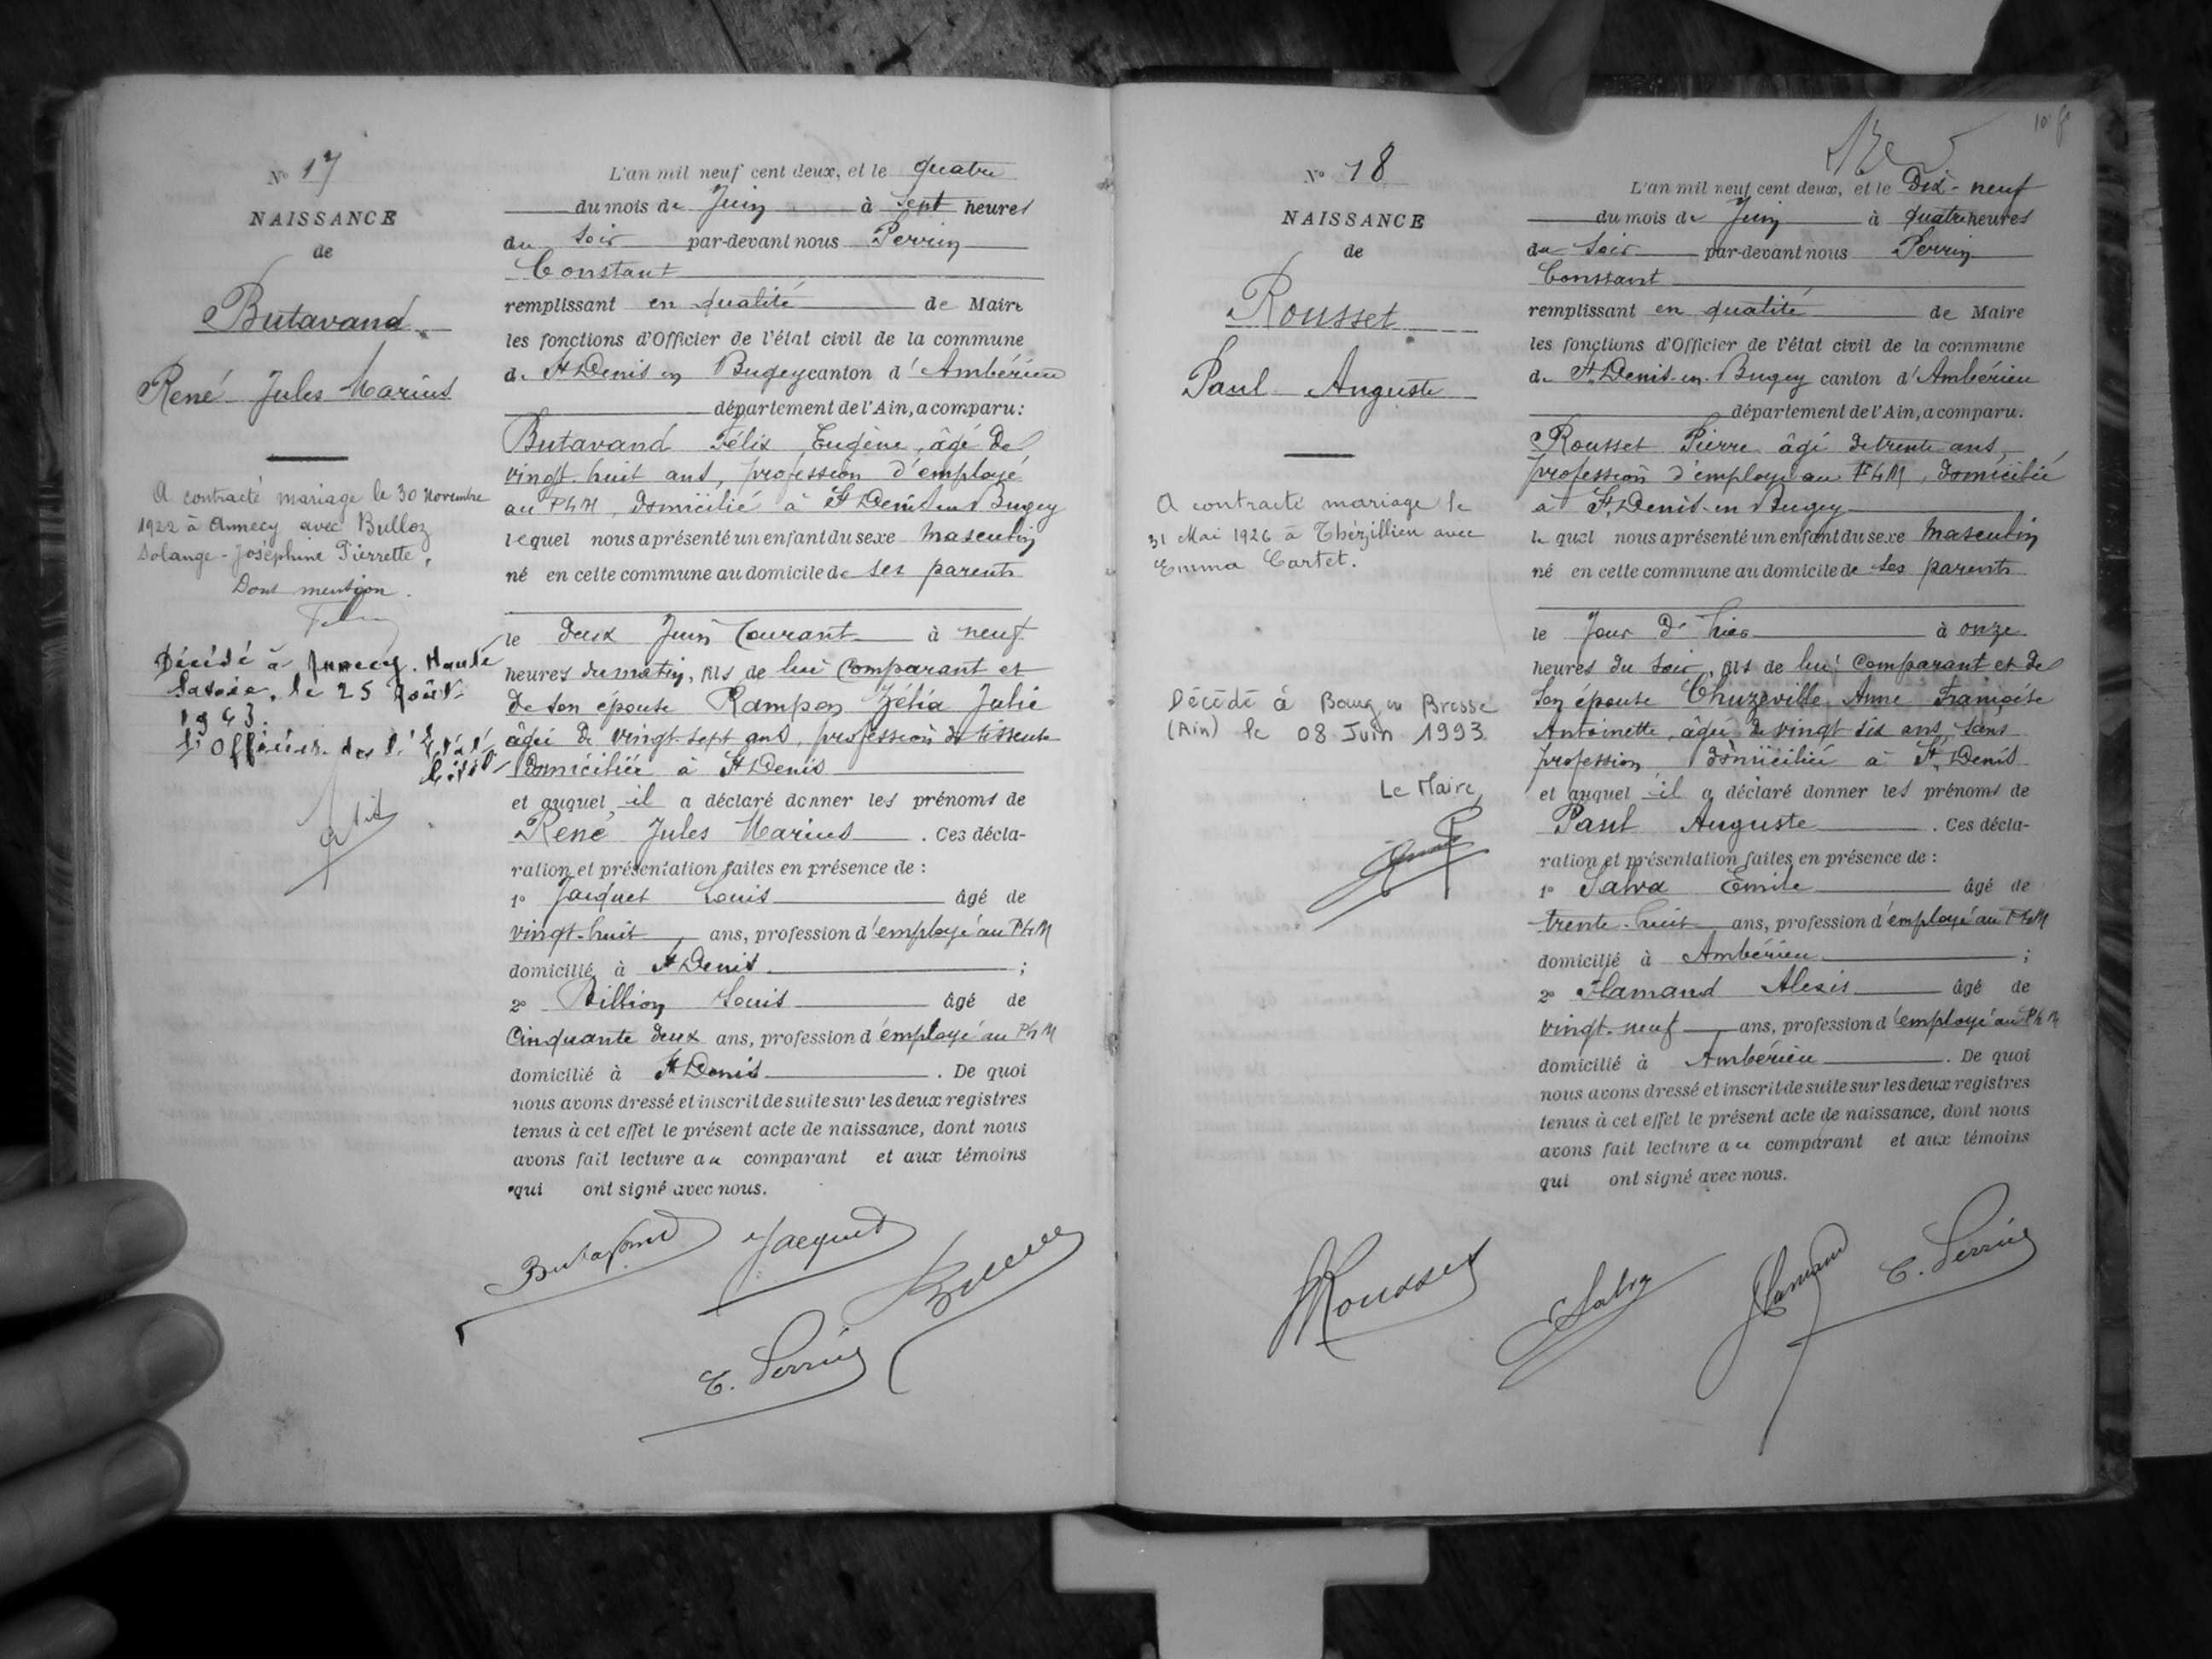 N° 17
NAISSANCE
de
Butavand
René Jules Marius
A contracté mariage le 30 Novembre
1922 à Annecy avec Bulloz
Solange-Joséphine Pierrette.
Dont mention.
Décédé à Annecy. Haute
Savoie, le 25 Août
1943.
L'Officier de l'Etat
Civil
L'an mil neuf cent deux, et le quatre
du mois de Juin à sept heures
du soir par-devant nous Perrin
Constant
remplissant en qualité de Maire
les fonctions d'Officier de l'état civil de la commune
de St Denis en Bugey canton d'Ambérieu
département de l'Ain, a comparu:
Butavand Félix Eugène, âgé de
vingt-huit ans, profession d'employé
au PLM, domicilié à St Denis en Bugey
lequel nous a présenté un enfant du sexe masculin
né en cette commune au domicile de ses parents
le deux Juin Courant à neuf
heures du matin, fils de lui comparant et
de son épouse Rampon Zélia Julie
âgée de vingt-sept ans, profession de tisseuse
domiciliée à St Denis
et auquel il a déclaré donner les prénoms de
René Jules Marius. Ces décla-
ration et présentation faites en présence de :
1° Jacquet Louis âgé de
vingt-huit ans, profession d'employé au PLM
domicilié à St Denis ;
2° Billion Louis âgé de
Cinquante deux ans, profession d'employé au PLM
domicilié à St Denis. De quoi
nous avons dressé et inscrit de suite sur les deux registres
tenus à cet effet le présent acte de naissance, dont nous
avons fait lecture au comparant et aux témoins
qui ont signé avec nous.
Butavand Jacquet
C. Perrin
N° 18
NAISSANCE
de
Rousset
Paul Auguste
A contracté mariage le
31 Mai 1926 à Thézillieu avec
Emma Cartet.
Décédé à Bourg en Bresse
(Ain) le 08 Juin 1993
Le Maire,
L'an mil neuf cent deux, et le Dix-neuf
du mois de Juin à quatre heures
du soir par-devant nous Perrin
Constant
remplissant en qualité de Maire
les fonctions d'Officier de l'état civil de la commune
de St. Denis-en-Bugey canton d'Ambérieu
département de l'Ain, a comparu.
Rousset Pierre âgé de trente ans,
profession d'employé au PLM, domicilié
à St. Denis-en Bugey
lequel nous a présenté un enfant du sexe masculin
né en cette commune au domicile de ses parents
le Jour d'hier à onze
heures du soir, fils de lui comparant et de
son épouse Chuzeville Anne Françoise
Antoinette, âgée de vingt six ans, sans
profession domiciliée à St. Denis
et auquel il a déclaré donner les prénoms de
Paul Auguste. Ces décla-
ration et présentation faites en présence de :
1° Salva Emile âgé de
trente-huit ans, profession d'employé au PLM
domicilié à Ambérieu ;
2° Flamand Alexis âgé de
vingt-neuf ans, profession d'employé au PLM
domicilié à Ambérieu. De quoi
nous avons dressé et inscrit de suite sur les deux registres
tenus à cet effet le présent acte de naissance, dont nous
avons fait lecture au comparant et aux témoins
qui ont signé avec nous.
Rousset Flamand C. Perrin